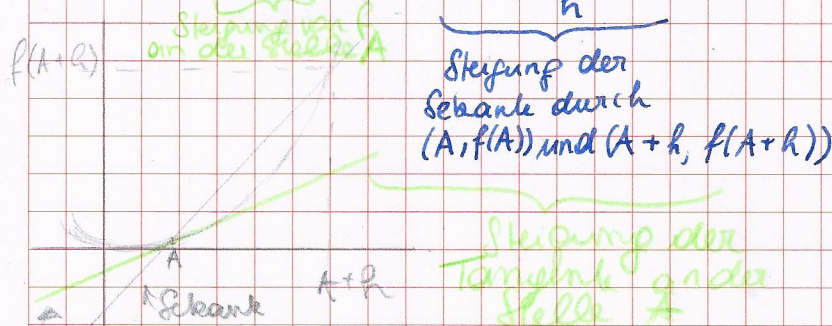 Steigung von f
an der Stelle A
h
f(A+h)
Steigung der
Sekante durch
(A, f(A)) und (A + h, f(A+h))
Steigung der
Tangente an der
Stelle A
A
A+h
↑Sekante